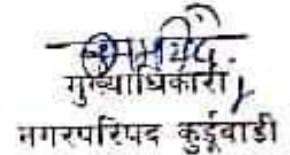 मुख्याधिकारी
नगरपरिषद कुर्डूवाडी